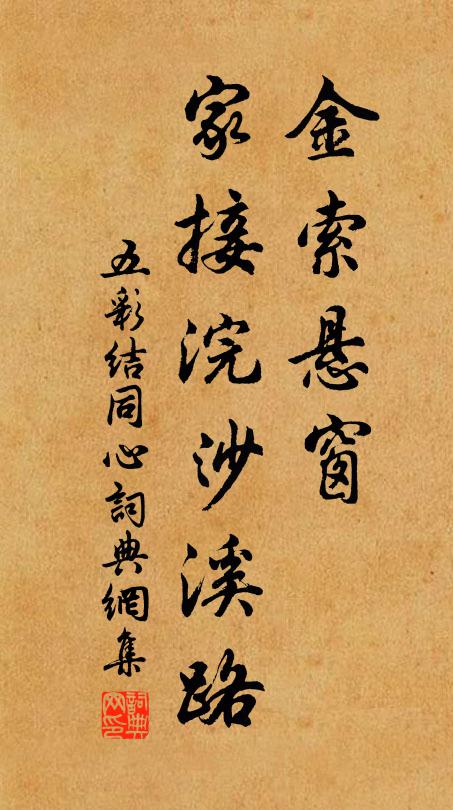 金索悬窗
家接浣沙溪路
五彩结同心詞典網集
詞典
网印